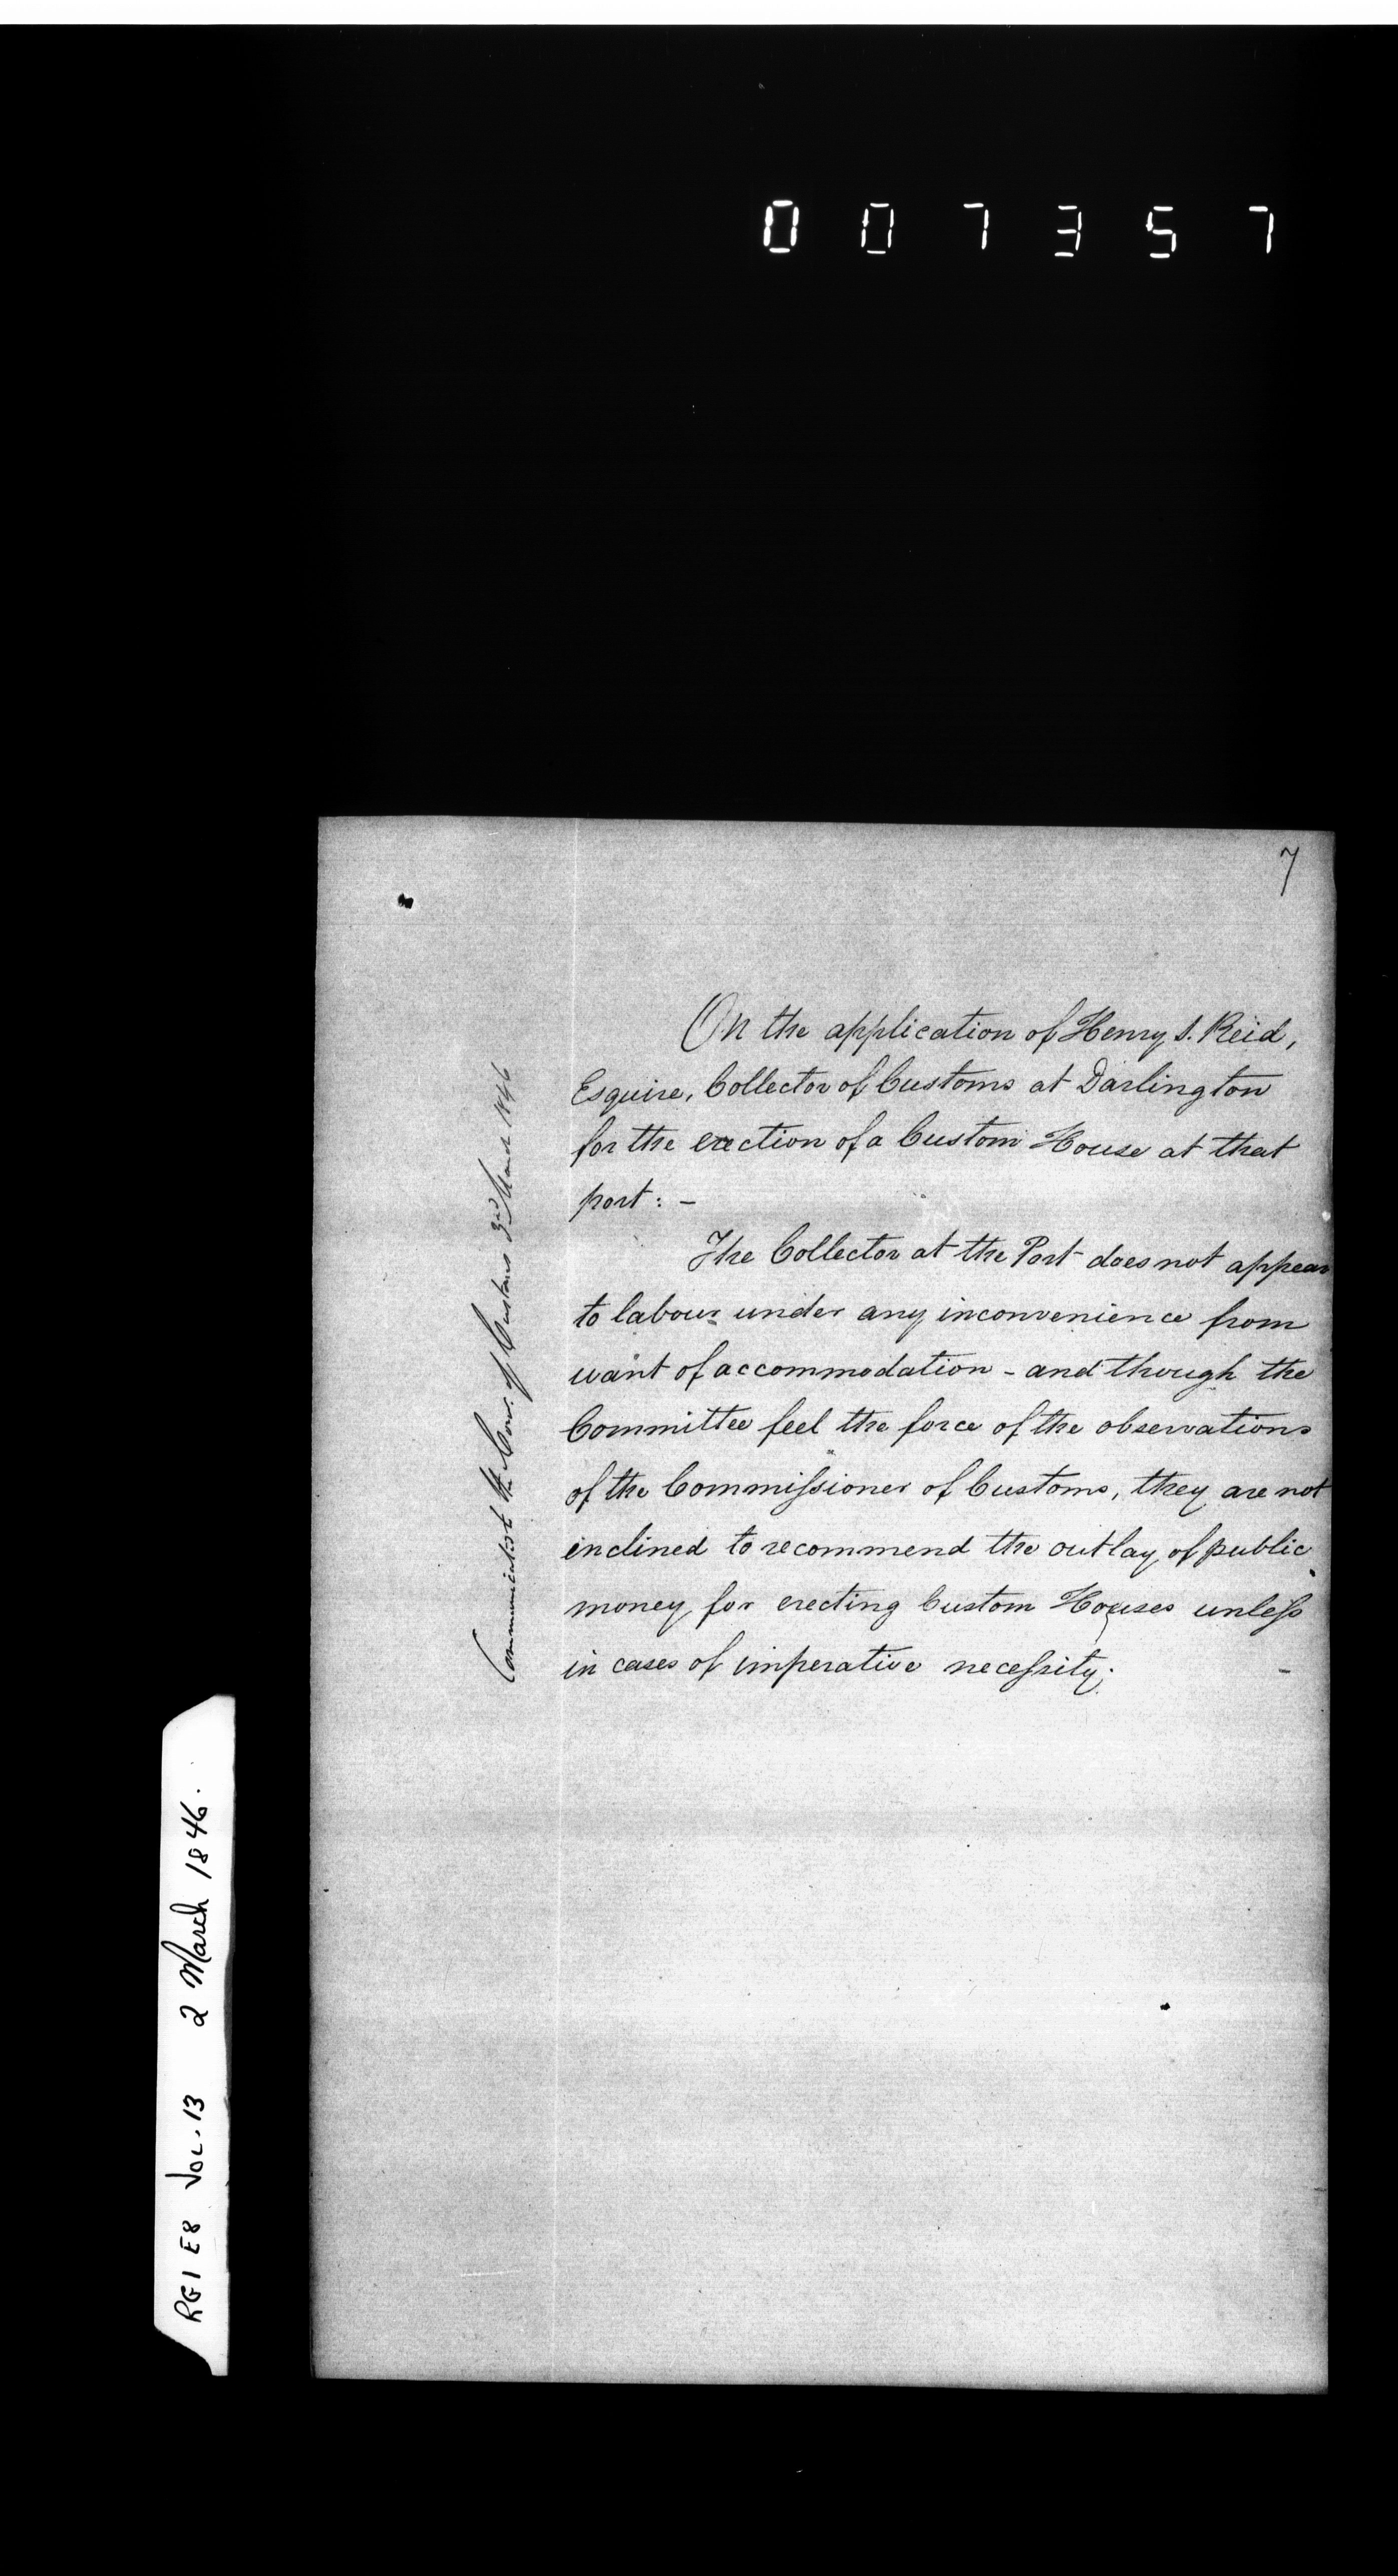 007357
7
On the application of Henry S. Reid,
Esquire, Collector of Customs at Darlington
for the erection of a Custom House at that
port: -
The Collector at the Port does not appear
to labour under any inconvenience from
want of accommodation - and though the
Committee feel the force of the observations
of the Commissioner of Customs, they are not
inclined to recommend the outlay of public
money for erecting Custom Houses unless
in cases of imperative necessity.
Communicated to the Com. of Customs 3rd March 1846
RG1 E8 VOL. 13 2 March 1846.